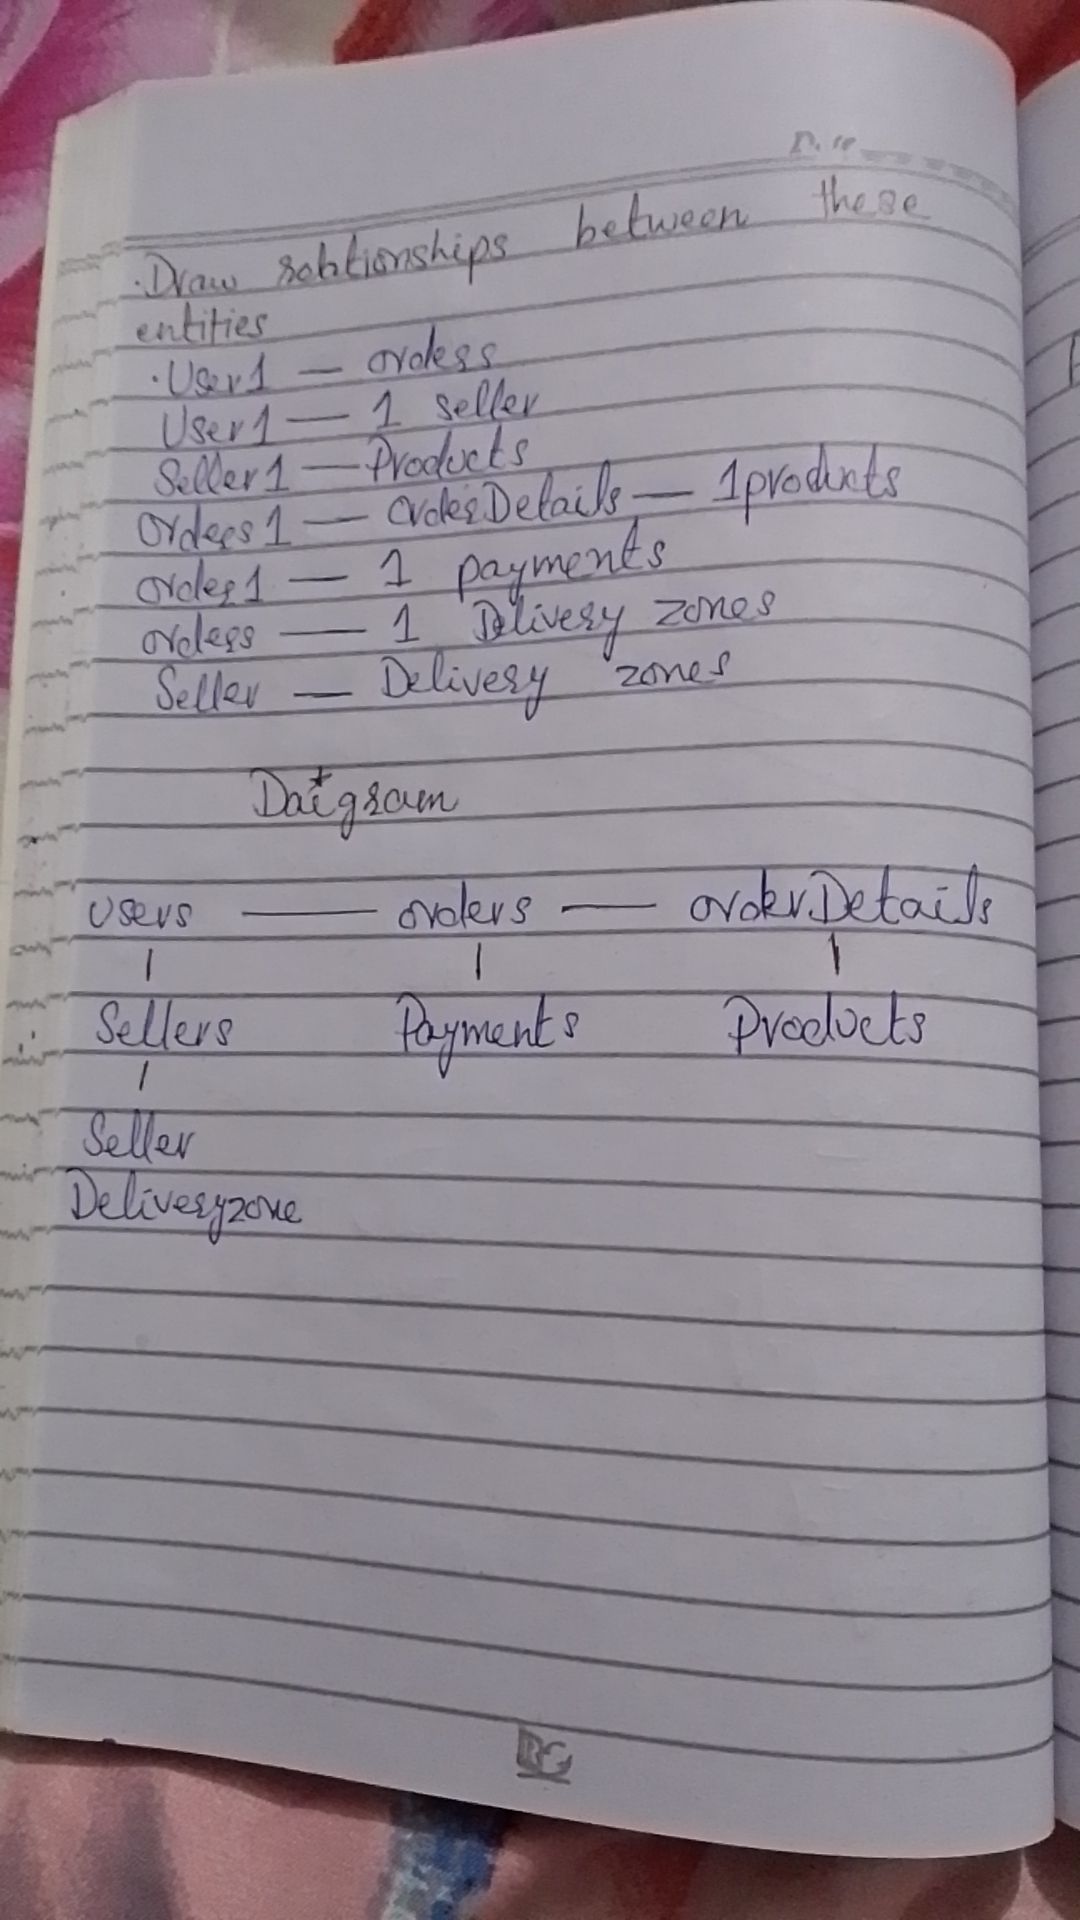 .Draw relationships between these
entities
.User1 — orders
User1 — 1 seller
Seller1 — Products
Orders1 — orderDetails — 1products
order1 — 1 payments
orders — 1 Delivery zones
Seller — Delivery zones
Daigram
Users — orders — order.Details
Sellers Payments Products
Seller
Deliveryzone
BG